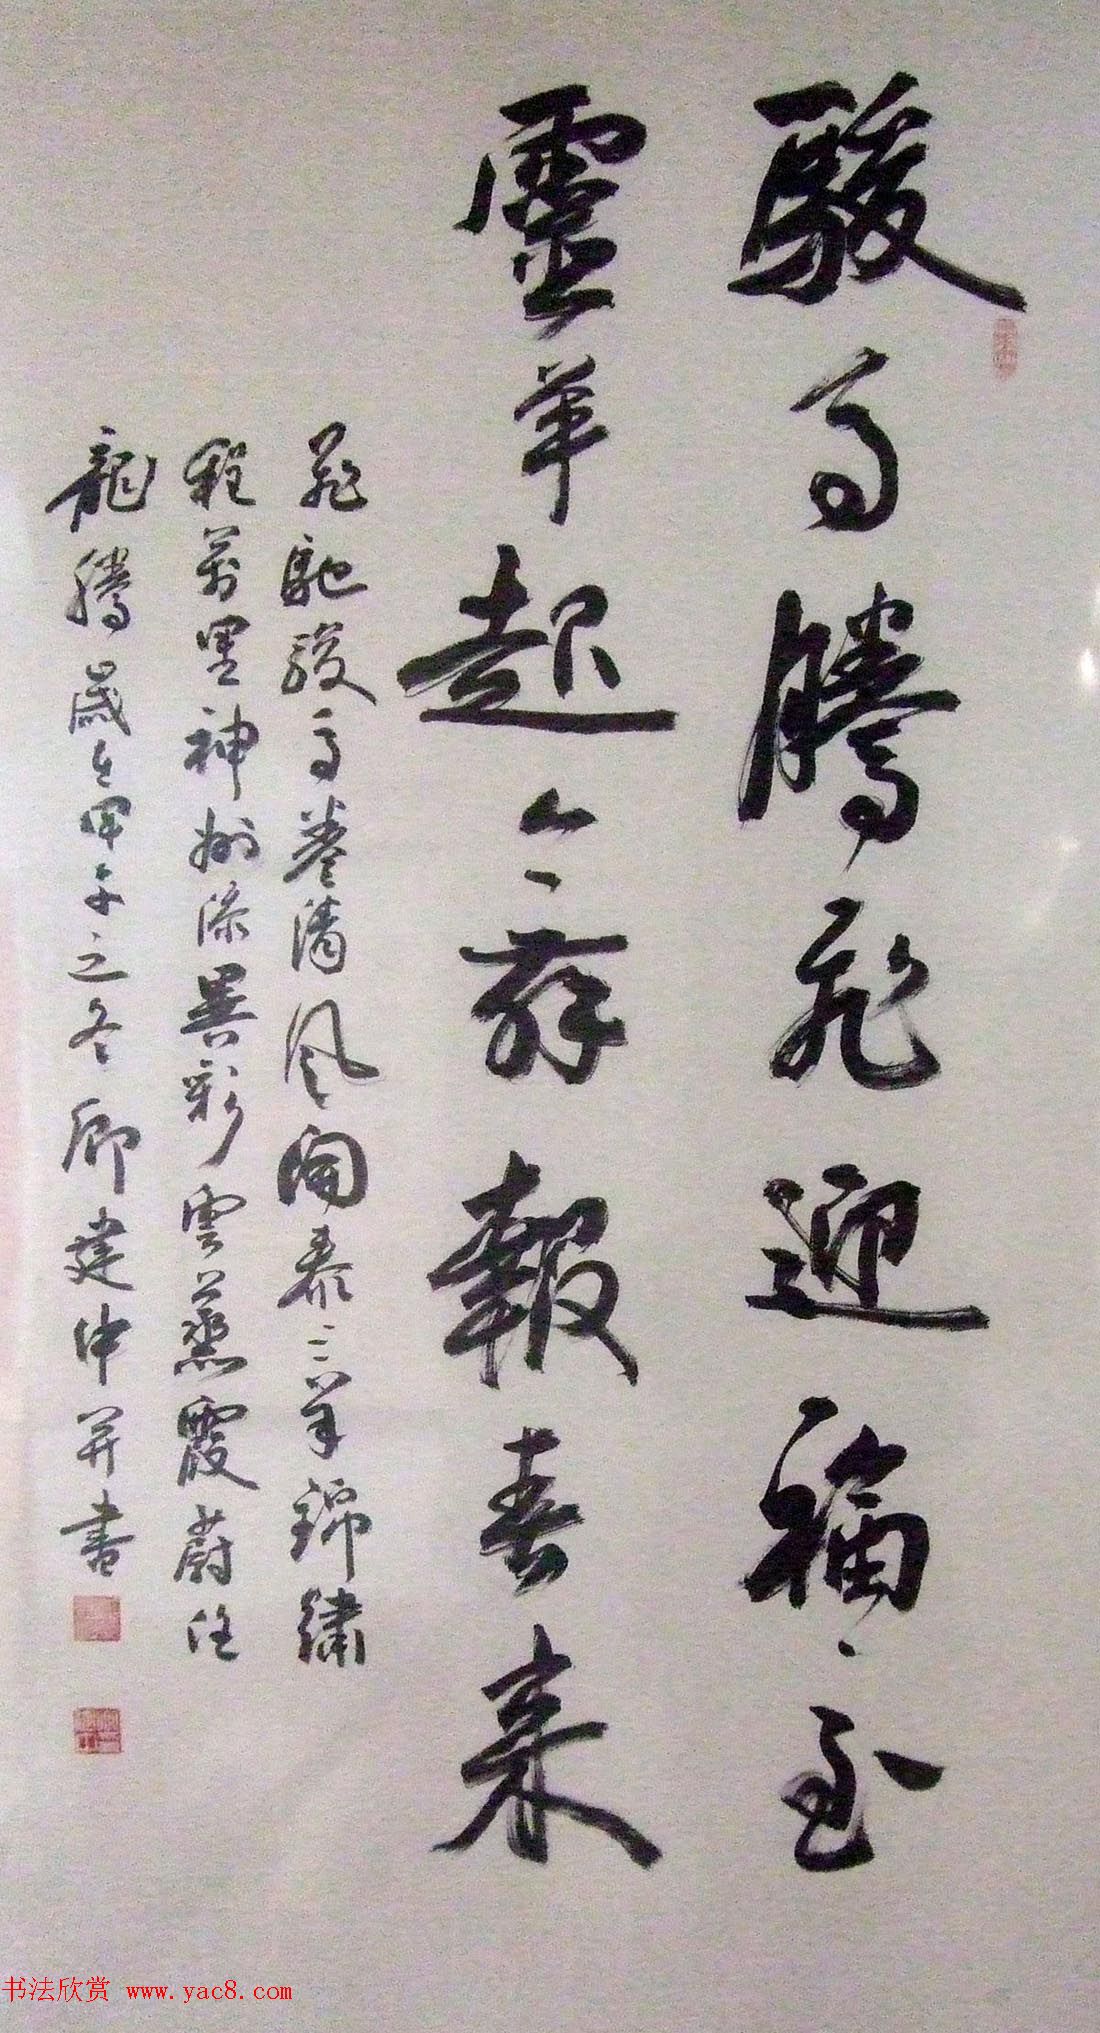 駿馬騰飛迎福至
靈羊起舞報春来
飛馳駿馬卷清風開泰三羊錦繡
程萬里神州添異彩雲蒸霞蔚任
龍騰歲在甲午之冬卿建中并書
书法欣赏 www.yac8.com